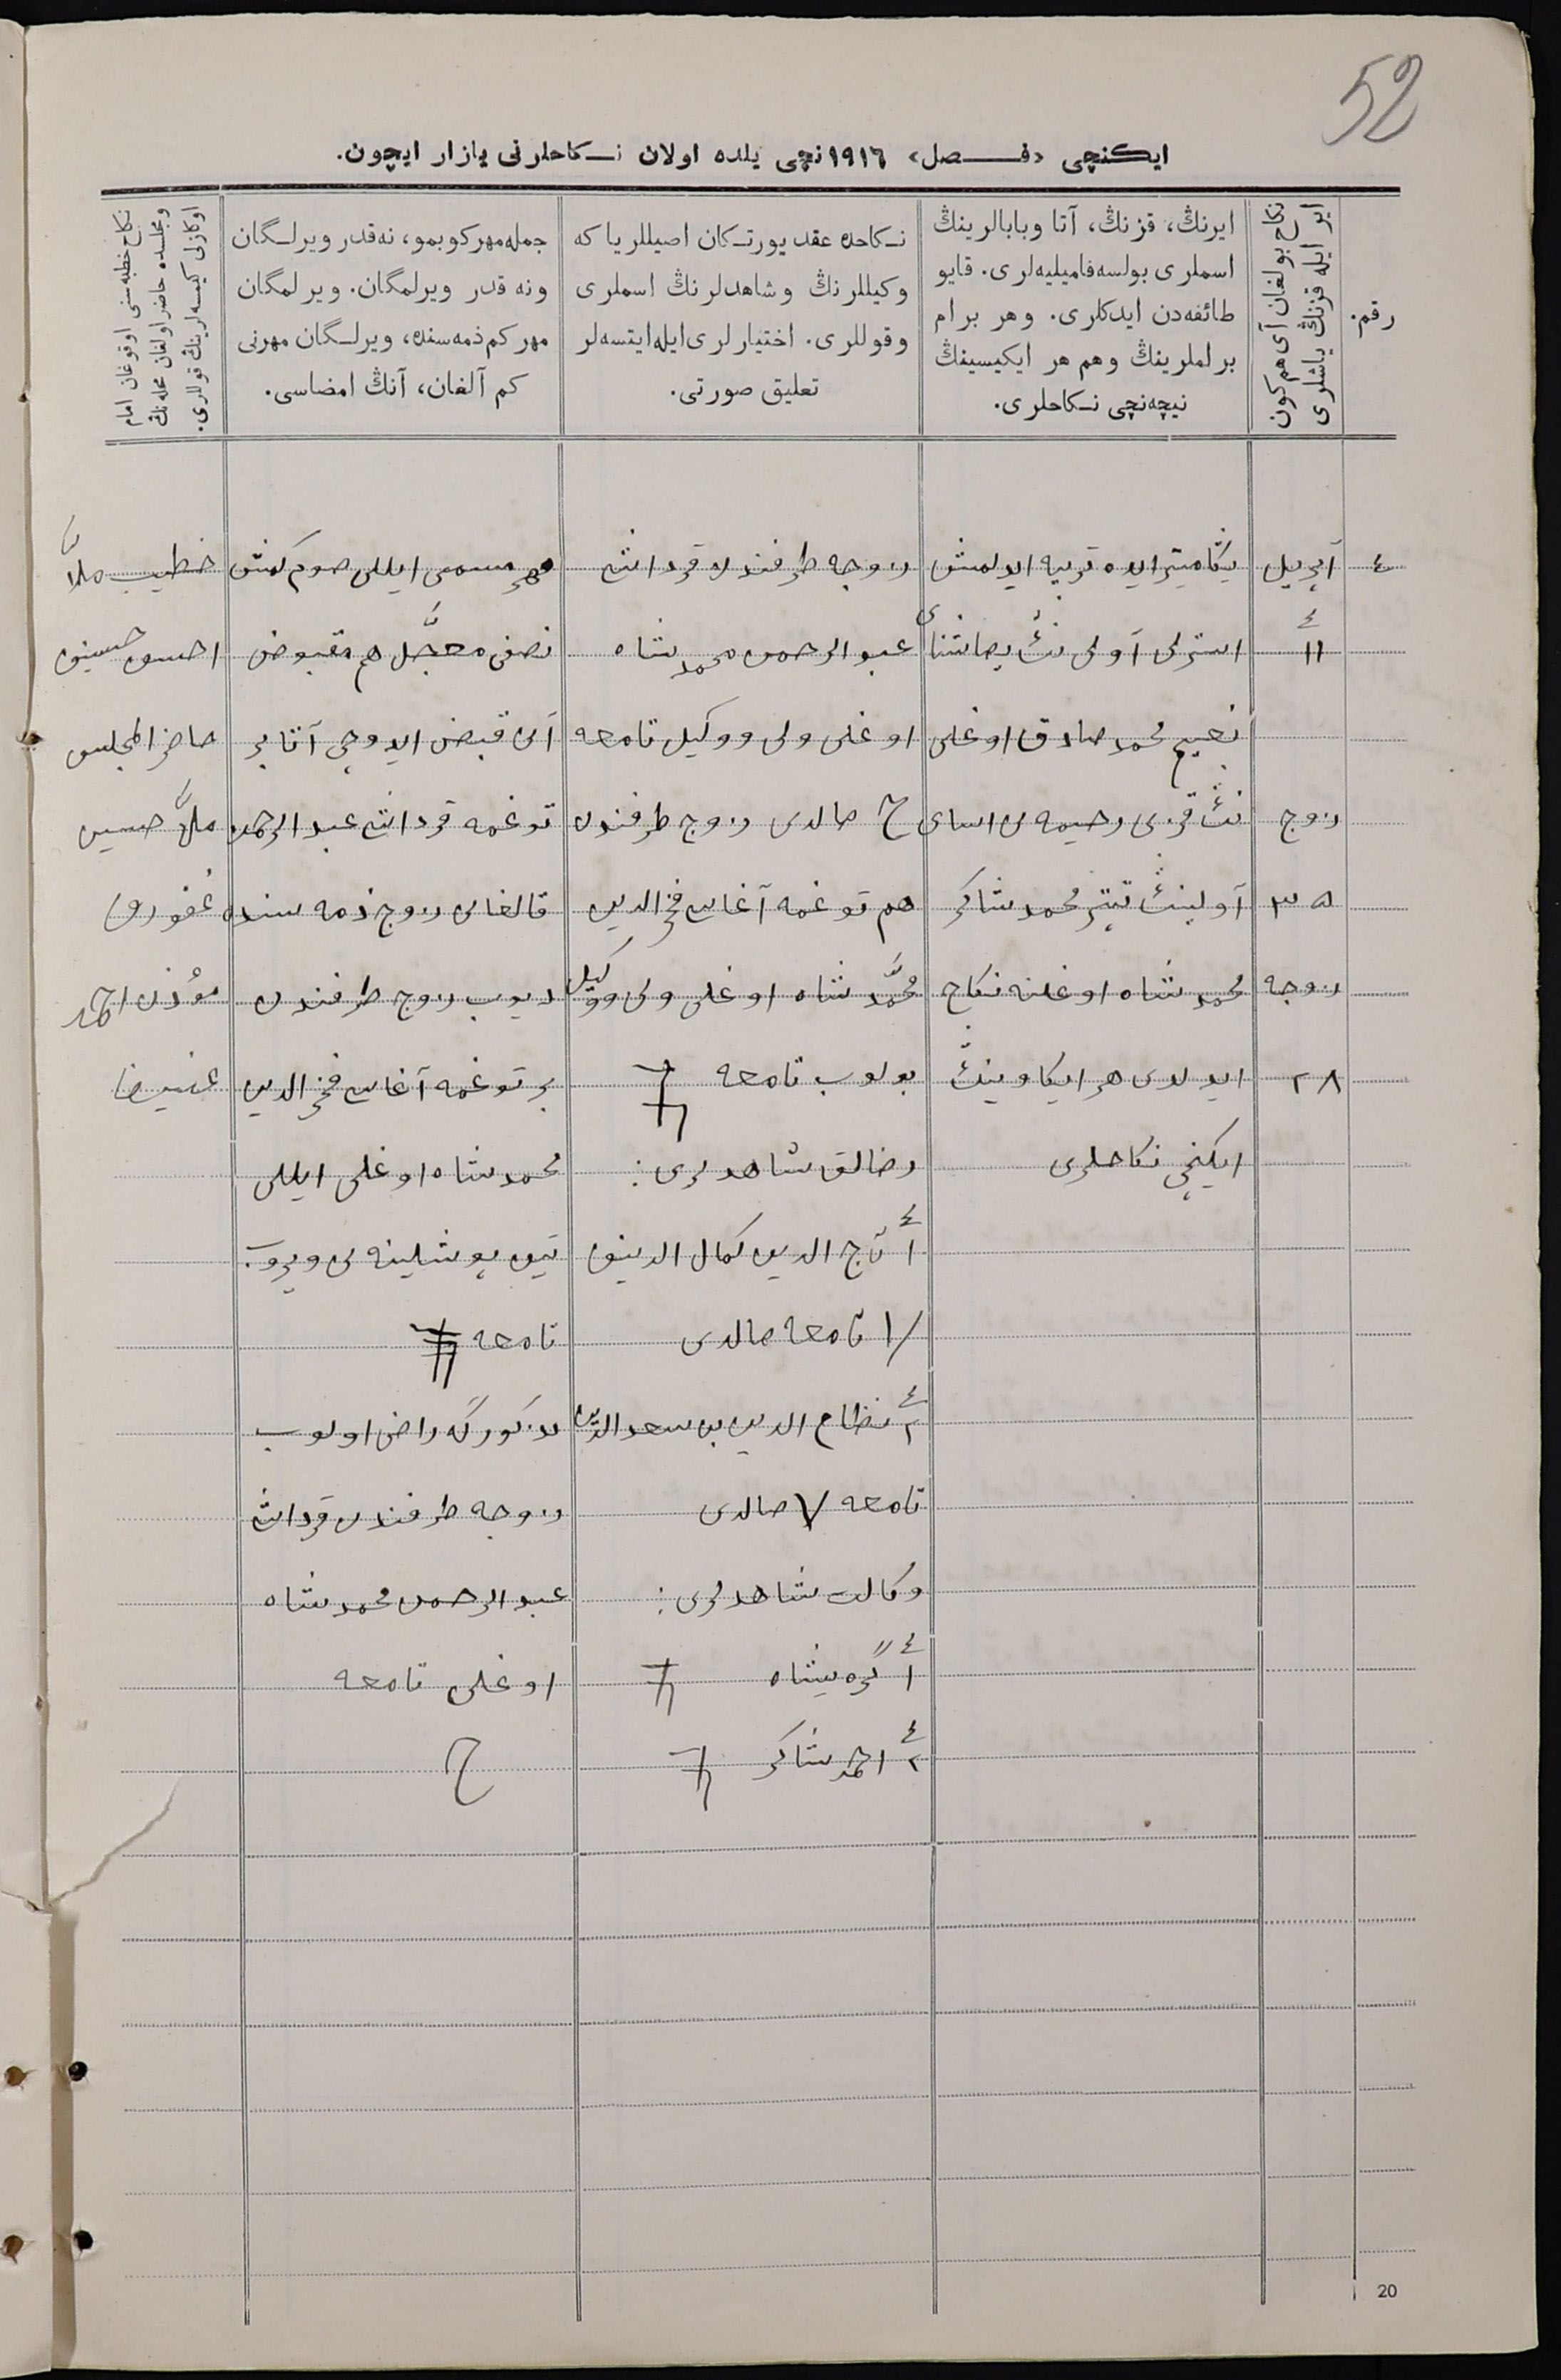 52
ایكنچی «فصل» ١٩١٦ نچی یلده اولان نكاحلرنی یازار ایچون.
رقم.
نكاح بولغان آی هم كون
ایر ایله قزنڭ یاشلری
ایرنڭ، قزنڭ، آتا وبابالرینڭ
اسملری بولسه فامیلیه‌لری. قایو
طائفه‌دن ایدكلری. وهر برام
براملرینڭ وهم هر ایكیسینڭ
نیچه‌نچی نكاحلری.
نكاحده عقد یورتكان اصیللر یا كه
وكیللرنڭ وشاهدلرنڭ اسملری
وقوللری. اختیارلری ایله ایتسه‌لر
تعلیق صورتی.
جمله مهر كوبمو، نه قدر ویرلگان
ونه قدر ویرلمگان. ویرلمگان
مهر كم ذمه‌سنده، ویرلگان مهرنی
كم آلغان، آنڭ امضاسی.
نكاح خطبه‌سنی اوقوغان امام
ومجلسده حاضر اولغان محله‌نڭ
اوكازلی كیسه‌لرینڭ قوللری.
٤
آپریل
١١
زوج
٣٥
زوجه
٢٨
تربیه ایدلمش
استرلی آولی ننڭ
نعیم محمد صادق اوغلی
ننڭ قزی رحیمه نی
آولیننڭ محمد شاكر
محمد شاه اوغلنه نكاح
ایدلدی هر ایكاوینڭ
ایكنچی نكاحلری
زوجه طرفندن قرداش
عبد الرحمن محمد شاه
اوغلی ولی ووكیل تامعه
صالدی زوج طرفندن
هم توغمه آغاسی فخر الدین
محمّد شاه اوغلی ولی ووكیل
بولوب تامعه
رضالق شاهدلری:
١ تاج الدین كمال الدینوف
تامعه صالدی
٢ نظام الدین بن سعد الدین
تامعه صالدی
وكالت شاهدلری:
١ گره یشاه
٢ احمد شاكر
مهر مسمی ایللی صوم كمش
نصفی معجّل هم مقبوض
آنی قبض ایدوچی آتا بر
توغمه قرداش عبد الرحمن
قالغانی زوج ذمه سنده
دیوب زوج طرفندن
بر توغمه آغاسی فخر الدین
محمد شاه اوغلی ایللی
تامعه
مذكورگه راضی اولوب
زوجه طرفندن قرداش
عبد الرحمن محمد شاه
اوغلی تامعه
خطیب ملّا
احسن حسینوف
حاضر المجلس
ملّا حسین
غفوروف
مؤذن احمد
20